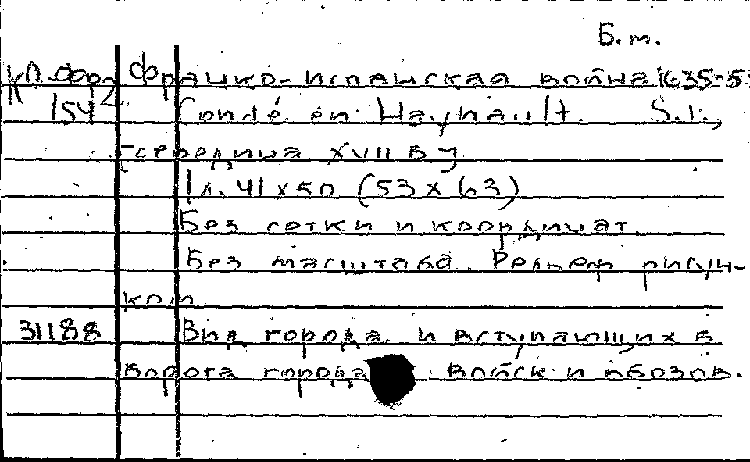 Б.м.
Кл.фра Франко-испанская война 1635-5
154 Condé en Haynault. S.l.,
[середина XVII в.]
1 л. 41х50 (53х63)
Без сетки и координат.
Без масштаба. Рельеф рисун-
ком
31188 Вид города и вступающих в
ворота города войск и обозов.